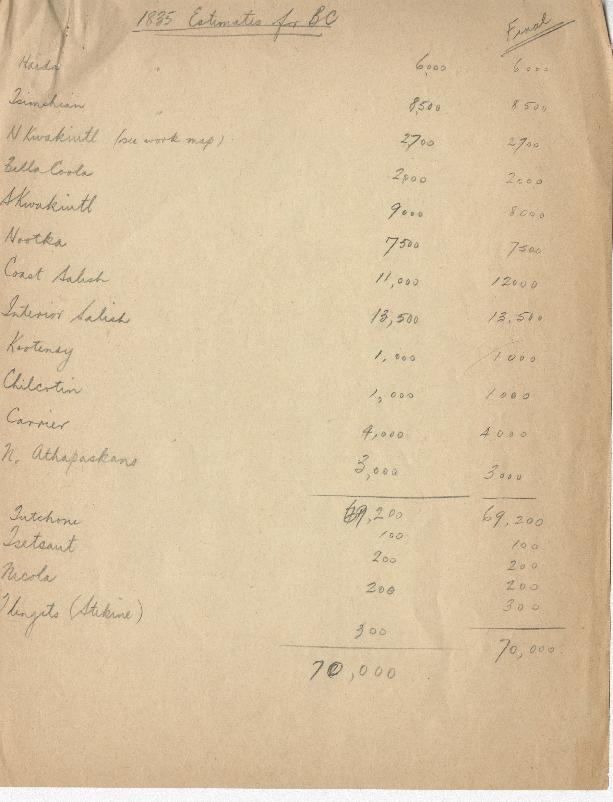 1835 Estimates for BC
Final
Haida 6000 6000
Tsimshian 8500 8500
N Kwakiutl (see work map) 2700 2700
Bella Coola 2,000 2000
S Kwakiutl 9000 8000
Nootka 7500 7500
Coast Salish 11,000 12000
Interior Salish 13,500 13,500
Kootenay 1,000 1000
Chilcotin 1,000 1000
Carrier 4,000 4000
N. Athapaskans 3,000 3000
69,200 69,200
Tutchone 100 100
Tsetsaut 200 200
Nicola 200 200
Tlingits (Stikine) 300 300
70,000 70,000